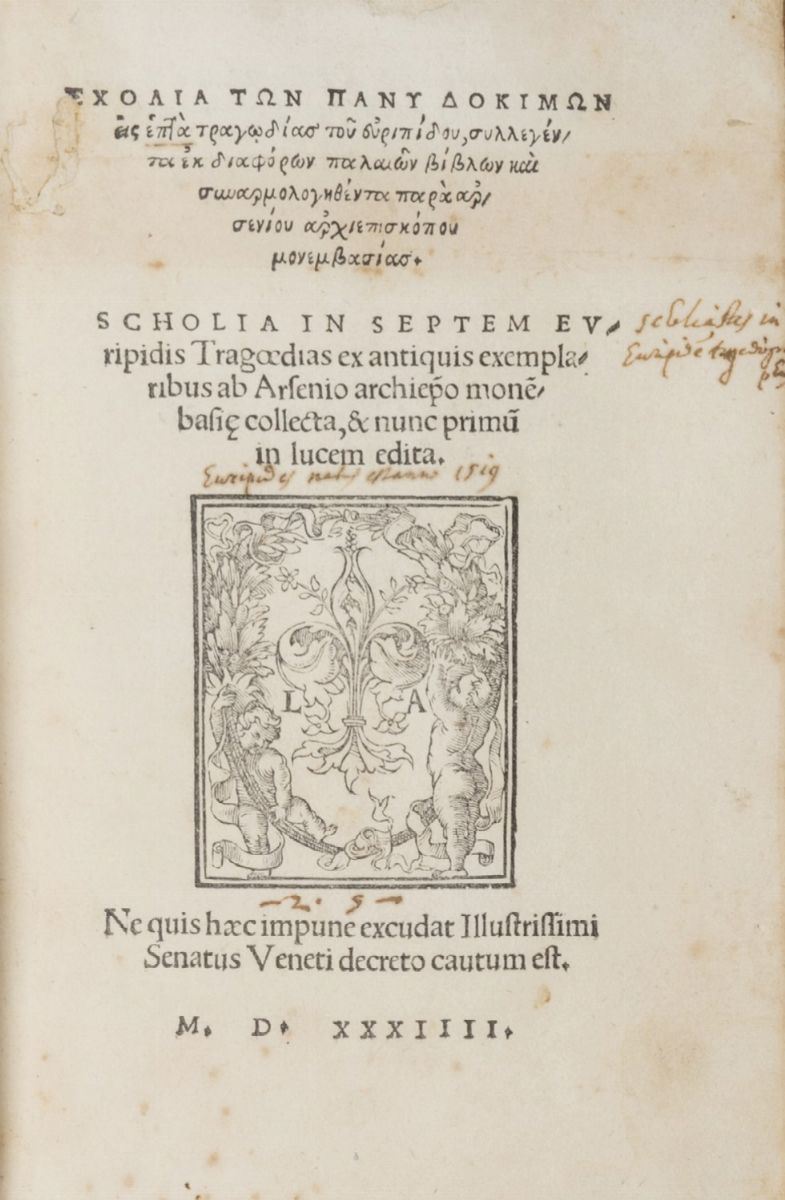 ΣΧΟΛΙΑ ΤΩΝ ΠΑΝΥ ΔΟΚΙΜΩΝ
εἰς ἑπτὰ τραγῳδίας τοῦ εὐριπίδου, συλλεγέν/
τα ἐκ διαφόρων παλαιῶν βίβλων καὶ
συναρμολογηθέντα παρὰ ἀρ/
σενίου ἀρχιεπισκόπου
μονεμβασίας.
SCHOLIA IN SEPTEM EV/
ripidis Tragœdias ex antiquis exempla/
ribus ab Arſenio archiep̃o monẽ/
baſię collecta, & nunc primũ
in lucem edita.
Euripides 1519
L A
2. 5
Ne quis hæc impune excudat Illuſtriſſimi
Senatus Veneti decreto cautum eſt.
M. D. XXXIIII.